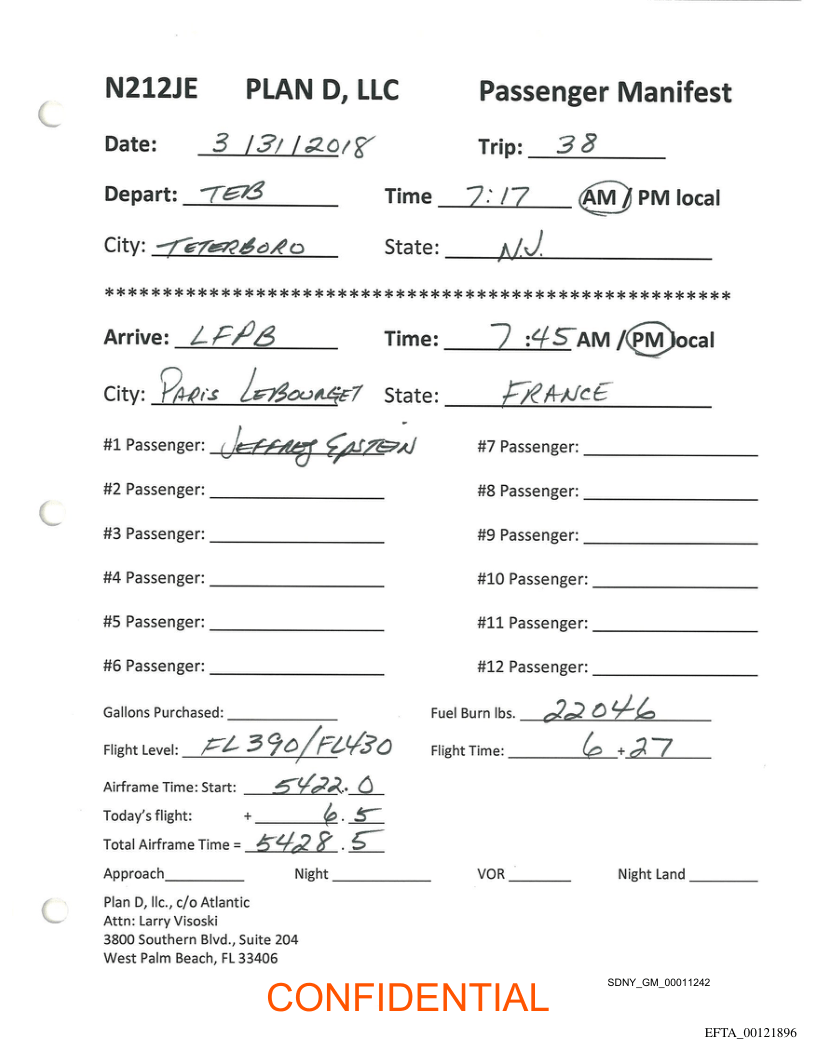 N212JE PLAN D, LLC Passenger Manifest
Date: 3 / 31 / 2018 Trip: 38
Depart: TEB Time 7:17 AM / PM local
City: TETERBORO State: N.J.
******************************************************
Arrive: LFPB Time: 7 :45 AM / PM local
City: PARIS LEBOURGET State: FRANCE
#1 Passenger: JEFFREY EPSTEIN #7 Passenger:
#2 Passenger: #8 Passenger:
#3 Passenger: #9 Passenger:
#4 Passenger: #10 Passenger:
#5 Passenger: #11 Passenger:
#6 Passenger: #12 Passenger:
Gallons Purchased: Fuel Burn lbs. 22046
Flight Level: FL 390/FL430 Flight Time: 6 + 27
Airframe Time: Start: 5422.0
Today's flight: + 6.5
Total Airframe Time = 5428.5
Approach Night VOR Night Land
Plan D, llc., c/o Atlantic
Attn: Larry Visoski
3800 Southern Blvd., Suite 204
West Palm Beach, FL 33406
SDNY_GM_00011242
CONFIDENTIAL
EFTA_00121896